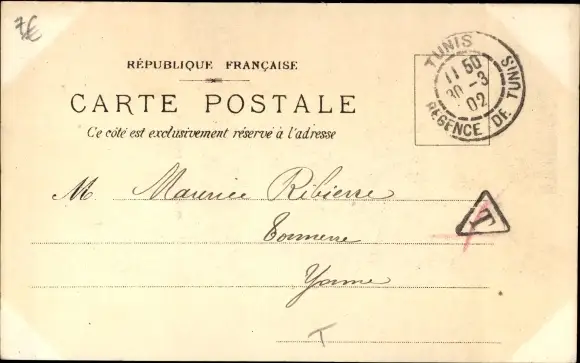 7€
RÉPUBLIQUE FRANÇAISE
CARTE POSTALE
Ce côté est exclusivement réservé à l'adresse
TUNIS
11 50
30 -3
02
REGENCE DE TUNIS
M Maurice Ribierre
T
Tonnerre
Yonne
T